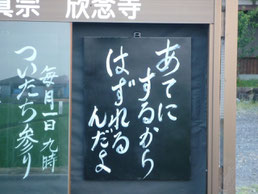 真宗 欣念寺
あてに
するから
はずれる
んだよ
毎月一日 九時
ついたち参り